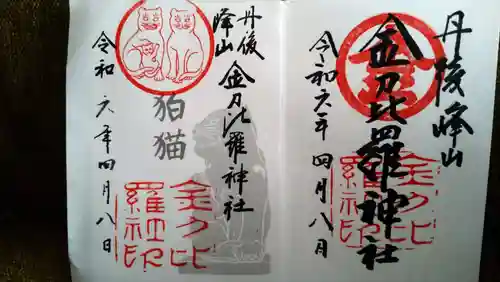 丹後峰山
金刀比羅神社
令和六年四月八日
金刀比
羅神社印
丹後
峰山
金刀比羅神社
狛猫
令和六年四月八日
金刀比
羅神社印